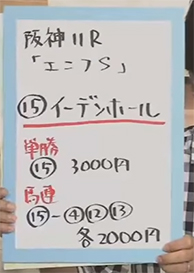 阪神11R
「エニフS」
⑮イーデンホール
単勝
⑮ 3000円
馬連
⑮-④⑫⑬
各2000円